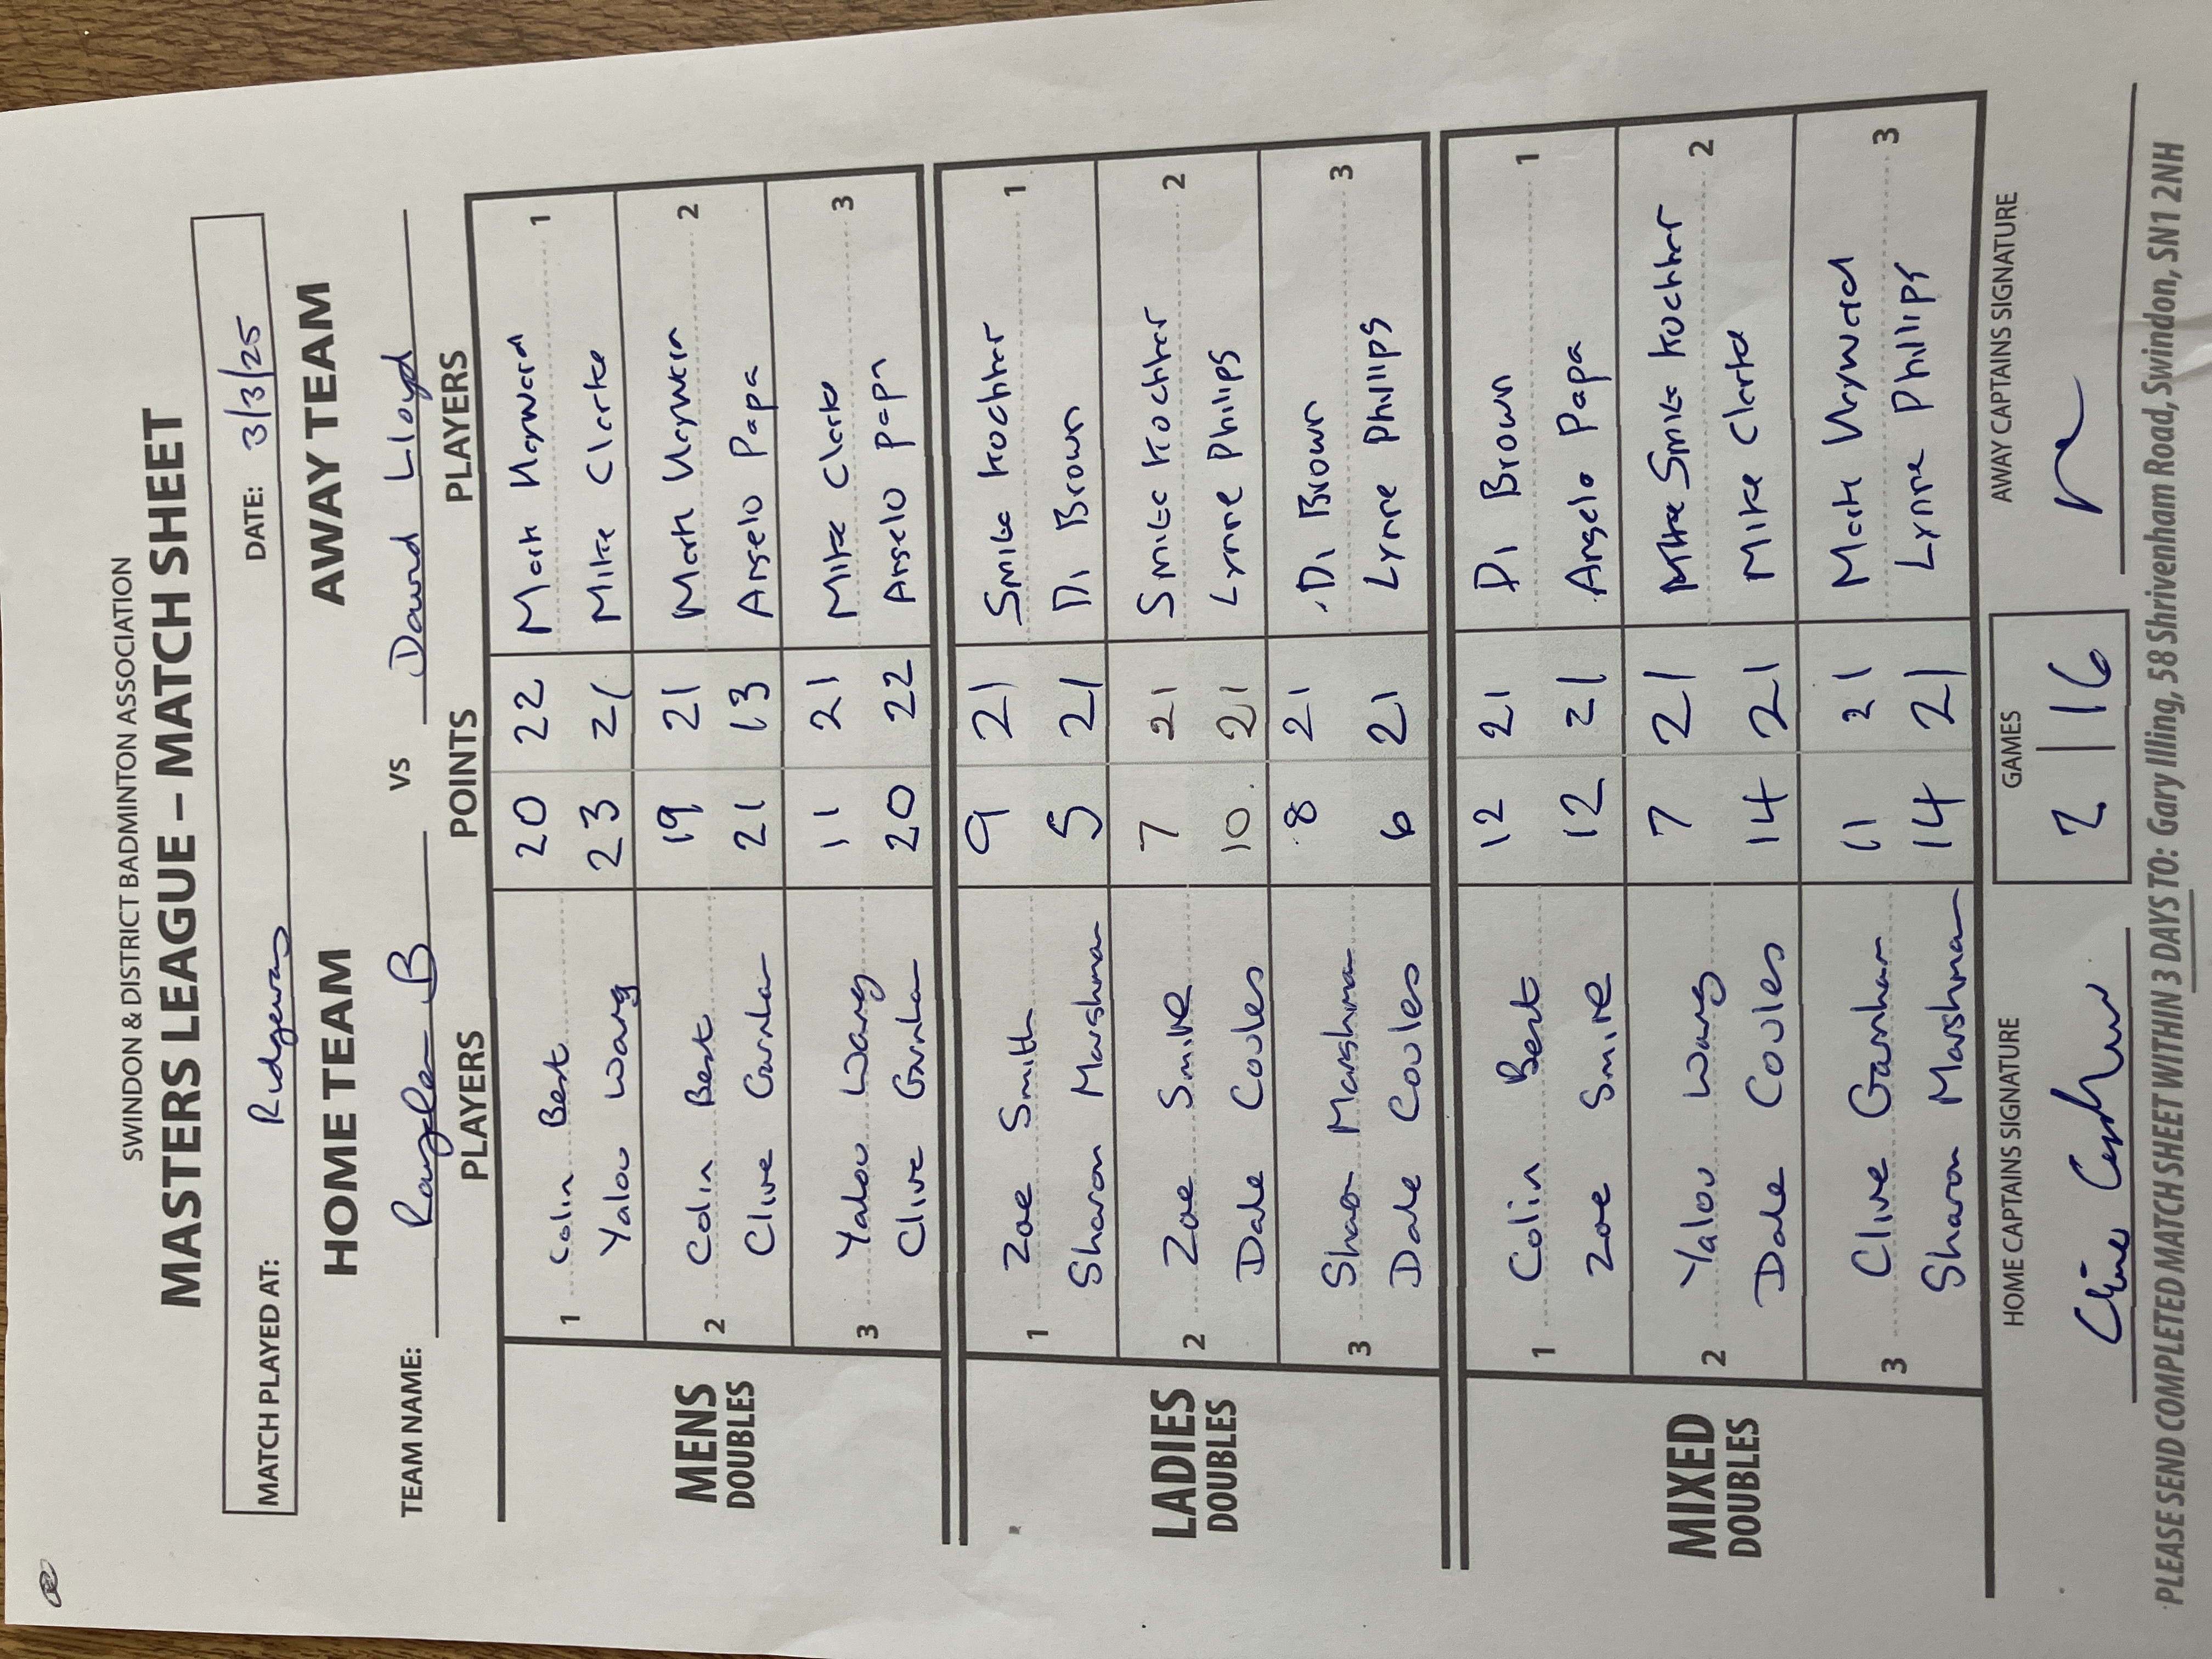 SWINDON & DISTRICT BADMINTON ASSOCIATION
MASTERS LEAGUE – MATCH SHEET
MATCH PLAYED AT: Ridgeway DATE: 3/3/25
HOME TEAM AWAY TEAM
TEAM NAME: B VS David Lloyd
PLAYERS POINTS PLAYERS
MENS DOUBLES
1 Colin Best 20 22 Mark Hayward 1
Yalou Wang 23 21 Mike Clarke
2 Colin Best 19 21 Mark 2
Clive Garnham 21 13 Angelo Papa
3 Yalou Wang 11 21 Mike Clarke 3
Clive Garnham 20 22 Angelo Papa
LADIES DOUBLES
1 Zoe Smith 9 21 Smita Kochhar 1
Sharon Marshman 5 21 Di Brown
2 Zoe 7 21 Smita Kochhar 2
Dale Coules 10 21 Lynne Phillips
3 Sharon Marshman 8 21 Di Brown 3
Dale Coules 6 21 Lynne Phillips
MIXED DOUBLES
1 Colin Best 12 21 Di Brown 1
Zoe 12 21 Angelo Papa
2 Yalou Wang 7 21 Smita Kochhar 2
Dale Coules 14 21 Mike Clarke
3 Clive Garnham 11 21 Mark Hayward 3
Sharon Marshman 14 21 Lynne Phillips
HOME CAPTAINS SIGNATURE GAMES AWAY CAPTAINS SIGNATURE
2 | 16
PLEASE SEND COMPLETED MATCH SHEET WITHIN 3 DAYS TO: Gary Illing, 58 Shrivenham Road, Swindon, SN1 2NH